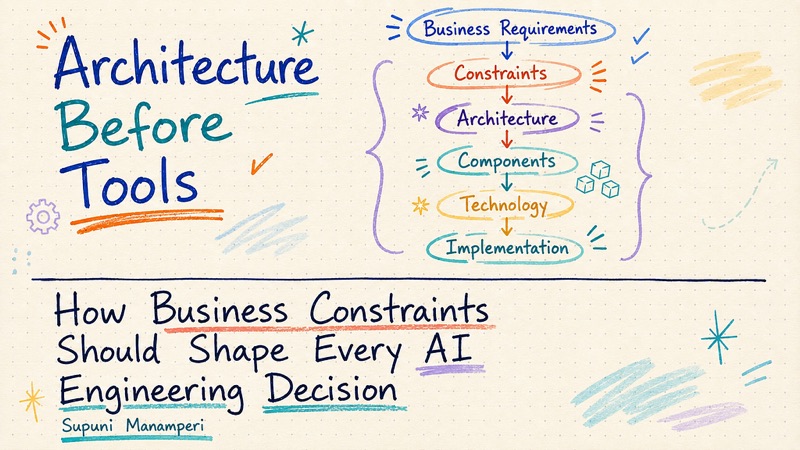 Architecture
Before
Tools
Business Requirements
Constraints
Architecture
Components
Technology
Implementation
How Business Constraints
Should Shape Every AI
Engineering Decision
Supuni Manamperi